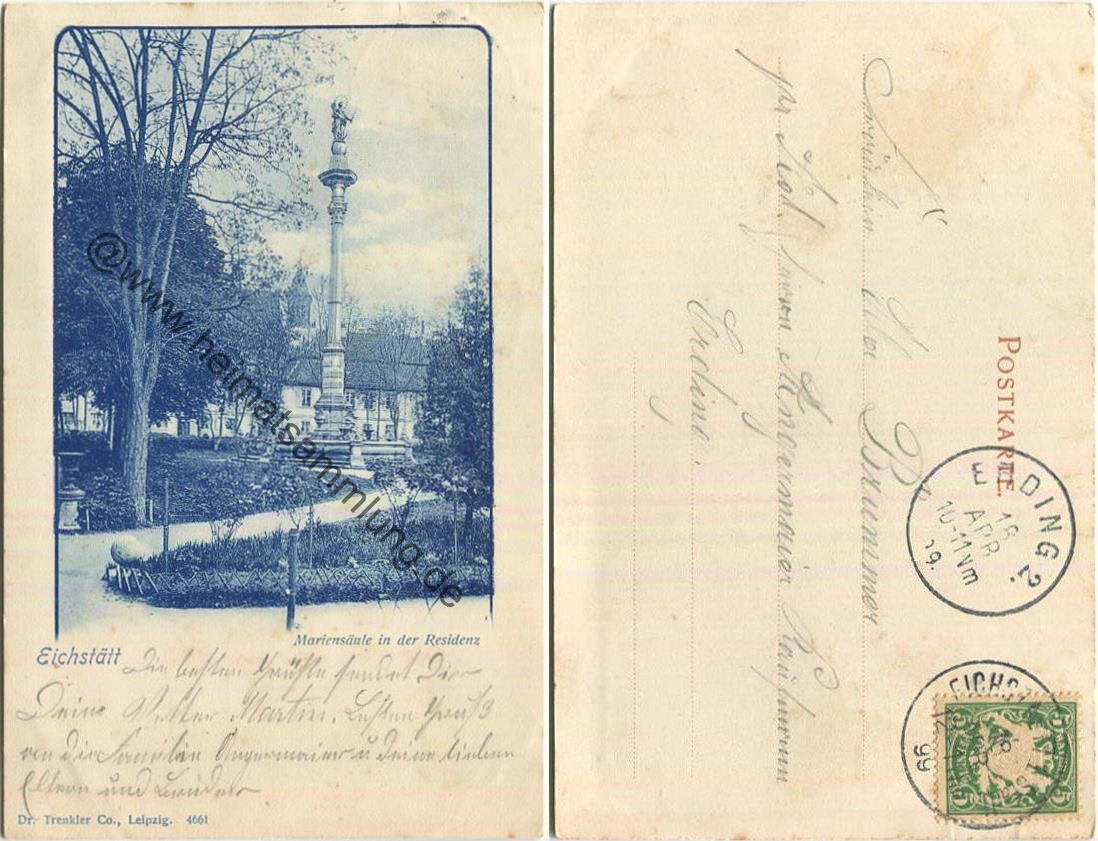 Mariensäule in der Residenz
Eichstätt
Die besten Grüße sendet Dir
Deine Vetter Martin. Besten Gruß
an die Familie Angermaier u deine lieben
Eltern und Brüder
Dr. Trenkler Co., Leipzig. 4661
@www.heimatsammlung.de
POSTKARTE.
Fräulein
Brummer
Angermaier Kaufmann
Erding.
ERDING 2.
18
APR
10-11 Vm
EICHSTÄTT
99
5